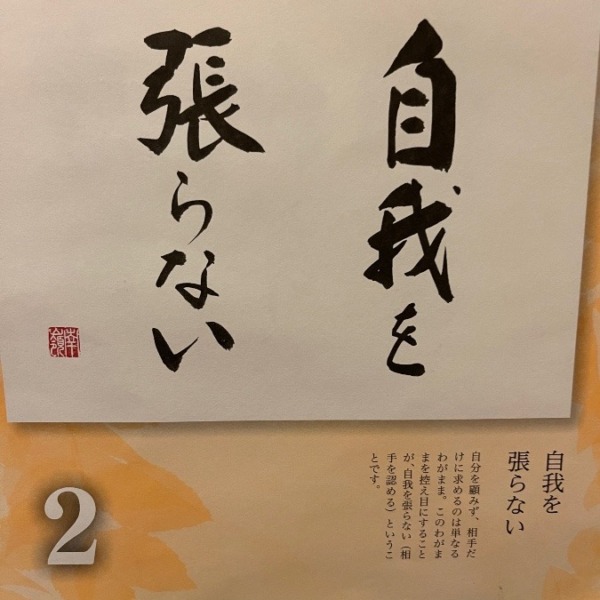 自我を
張らない
自我を
張らない
自分を顧みず、相手だ
けに求めるのは単なる
わがまま。このわがま
まを控え目にすること
が、自我を張らない（相
手を認める）というこ
とです。
2